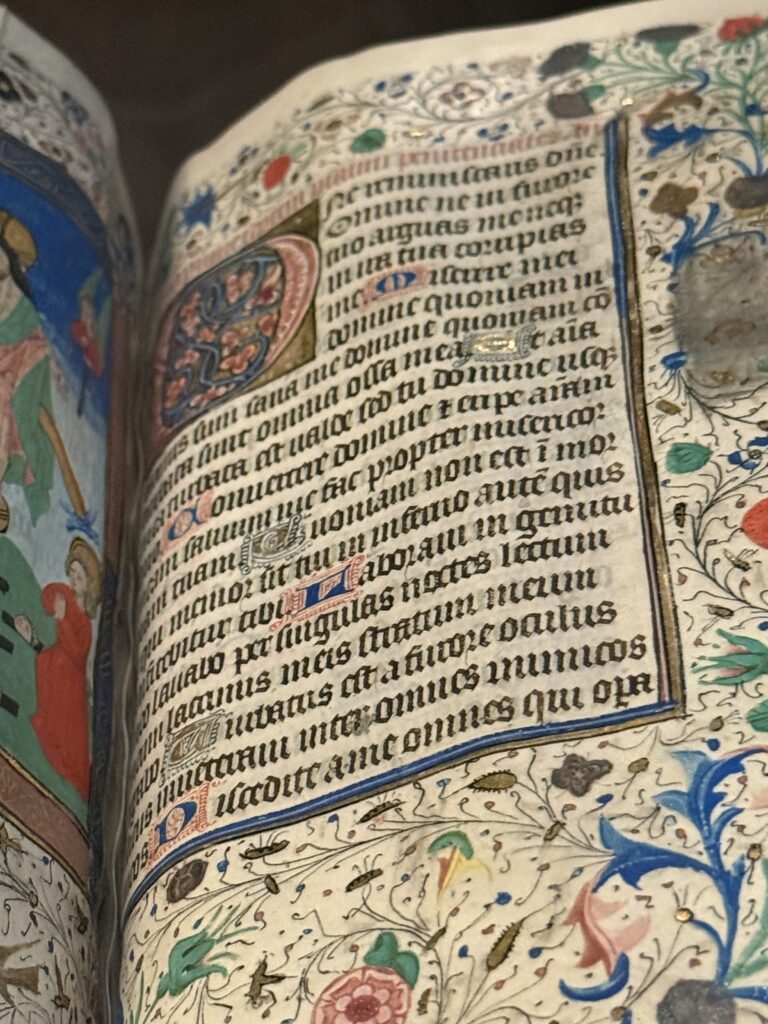 psalmi penitenciales. an
Ne reminiscaris dñe
omine ne in furore
tuo arguas me neqz
in ira tua corripias
me. Miserere mei
domine quoniam in
sum sana me domine quoniam cō
sunt omnia ossa mea Et aīa
turbata est valde sed tu domine usqz
Convertere domine & eripe aīam
salvum me fac propter misericor
tuam Quoniam non est ī mor
memor sit tui in inferno autē quis
tibi Laboravi in gemitu
lavabo per singulas noctes lectum
lacrimis meis stratum meum
Turbatus est a furore oculus
inveteravi inter omnes inimicos
os Discedite a me omnes qui opa